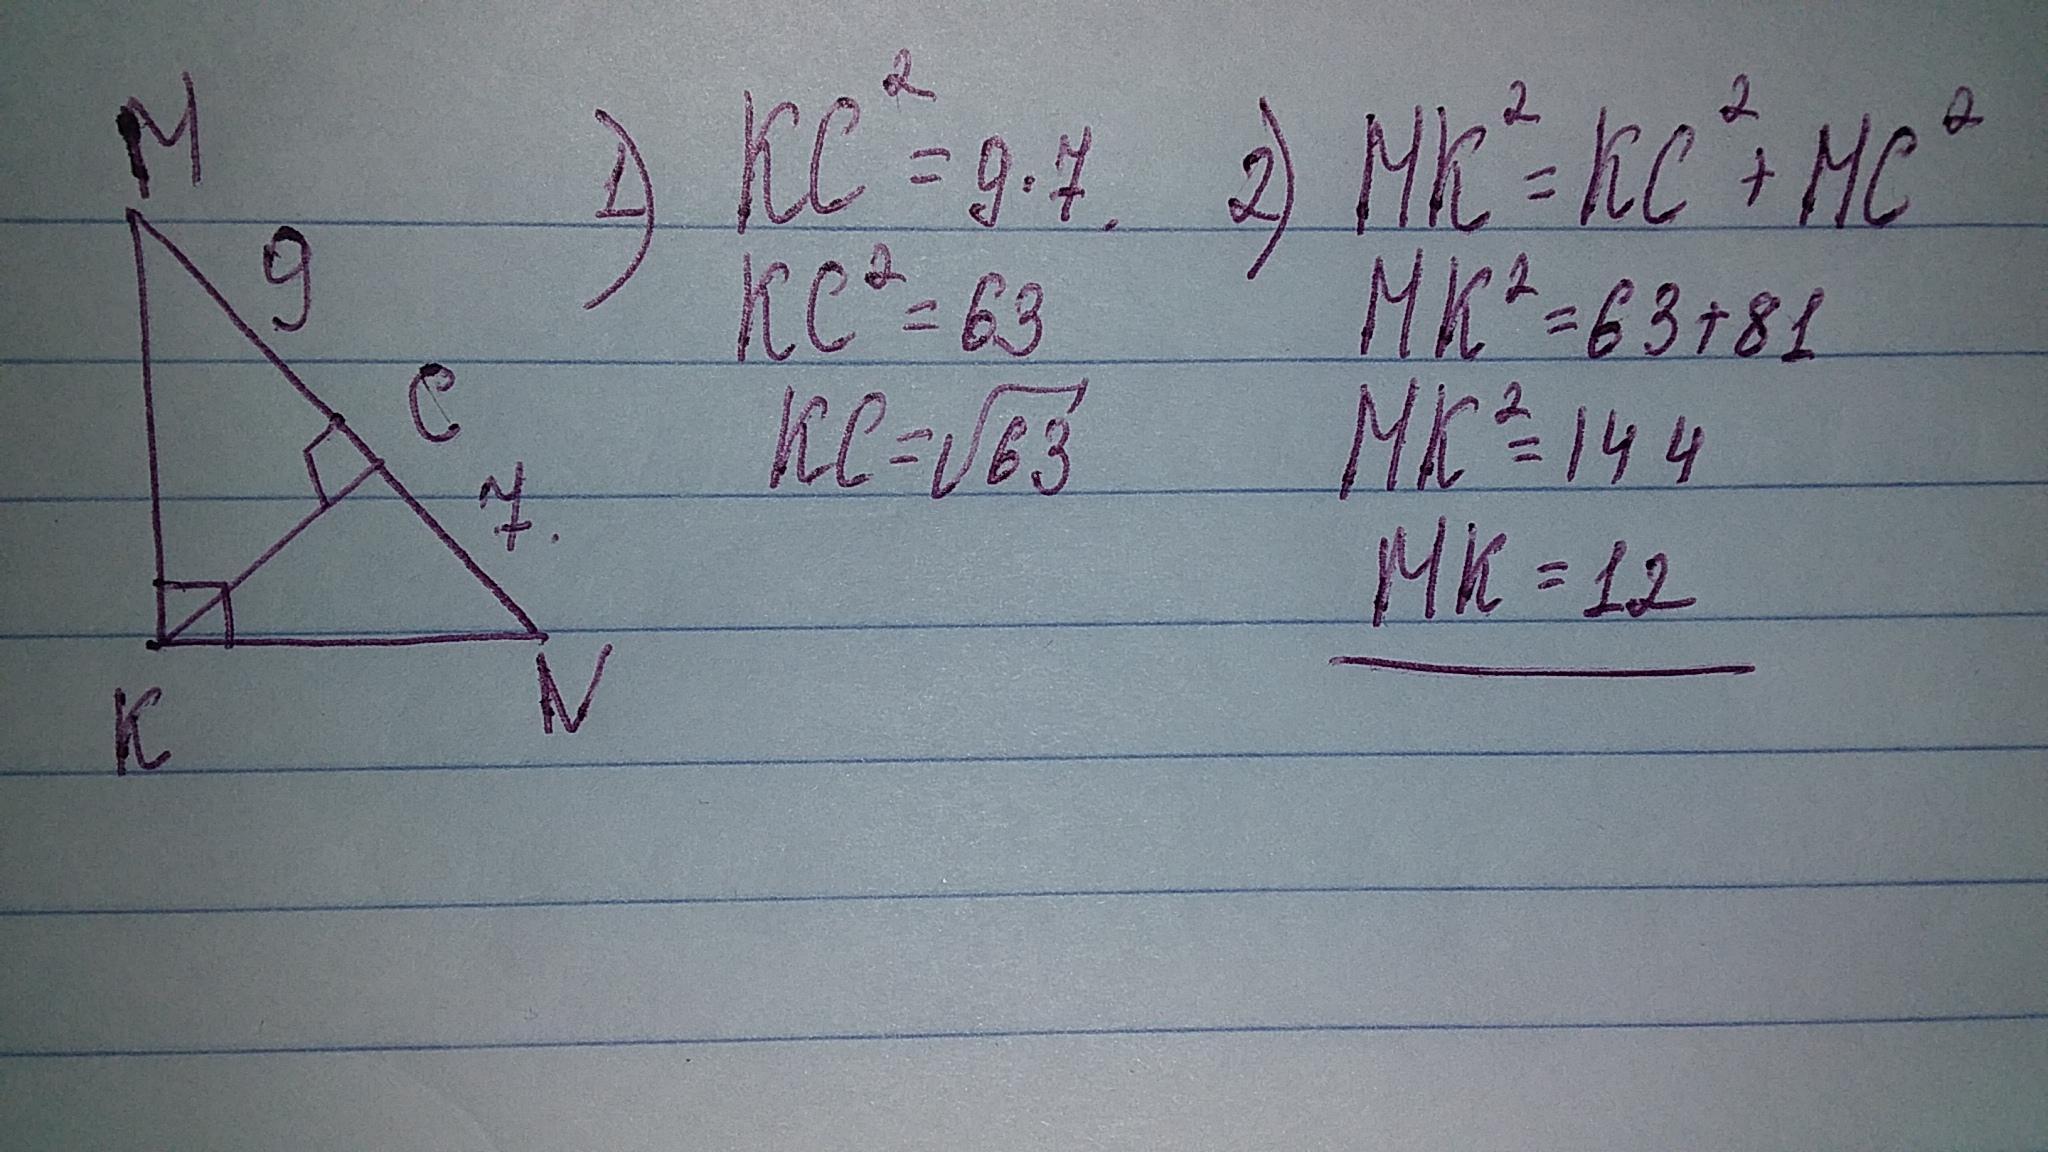 M
9
C
7.
K
N
1) KC² = 9·7.
KC² = 63
KC = √63
2) MK² = KC² + MC²
MK² = 63 + 81
MK² = 144
MK = 12